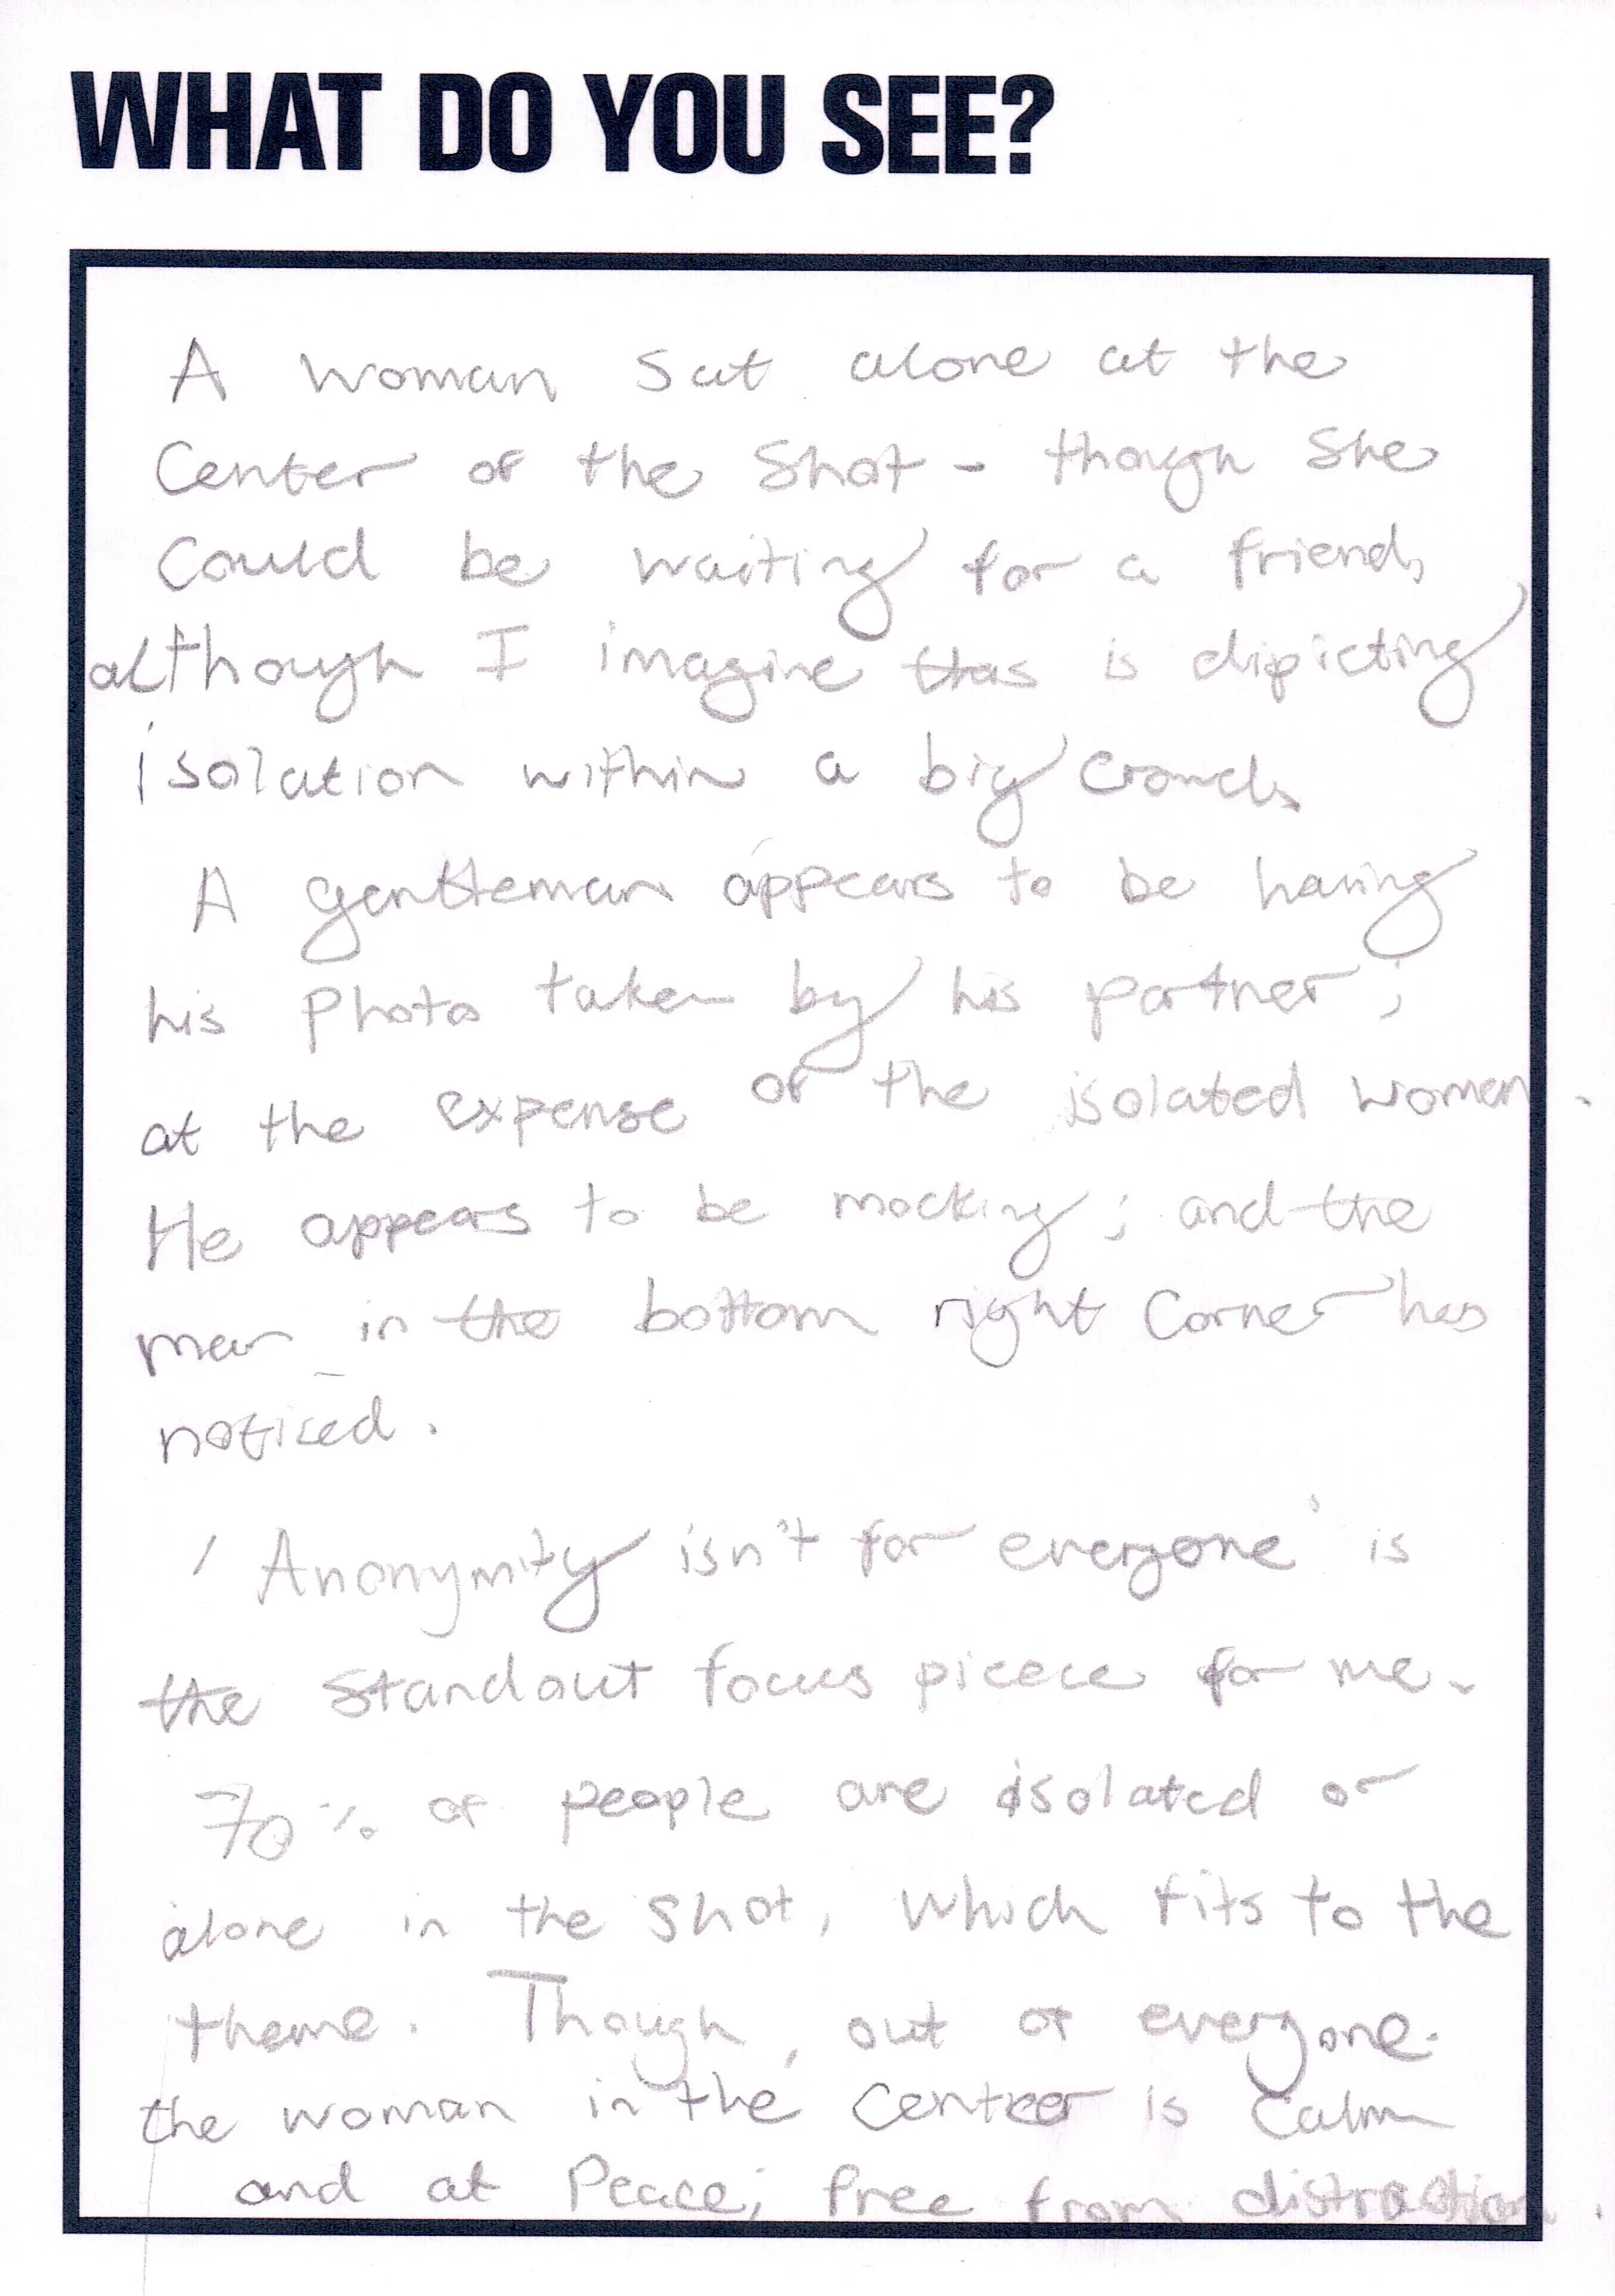 WHAT DO YOU SEE?
A woman sat alone at the
Center of the Shot - though She
Could be waiting for a friend,
although I imagine this is dipicting
isolation within a big crowd.
A gentleman appears to be having
his Photo taken by his partner;
at the expense of the isolated women.
He appears to be mocking; and the
man in the bottom right Corner has
noticed.
'Anonymity isn't for everyone' is
the Standout focus picece for me.
70% of people are isolated or
alone in the Shot, which fits to the
theme. Though, out of everyone.
the woman in the center is Calm
and at Peace; free from distraction.